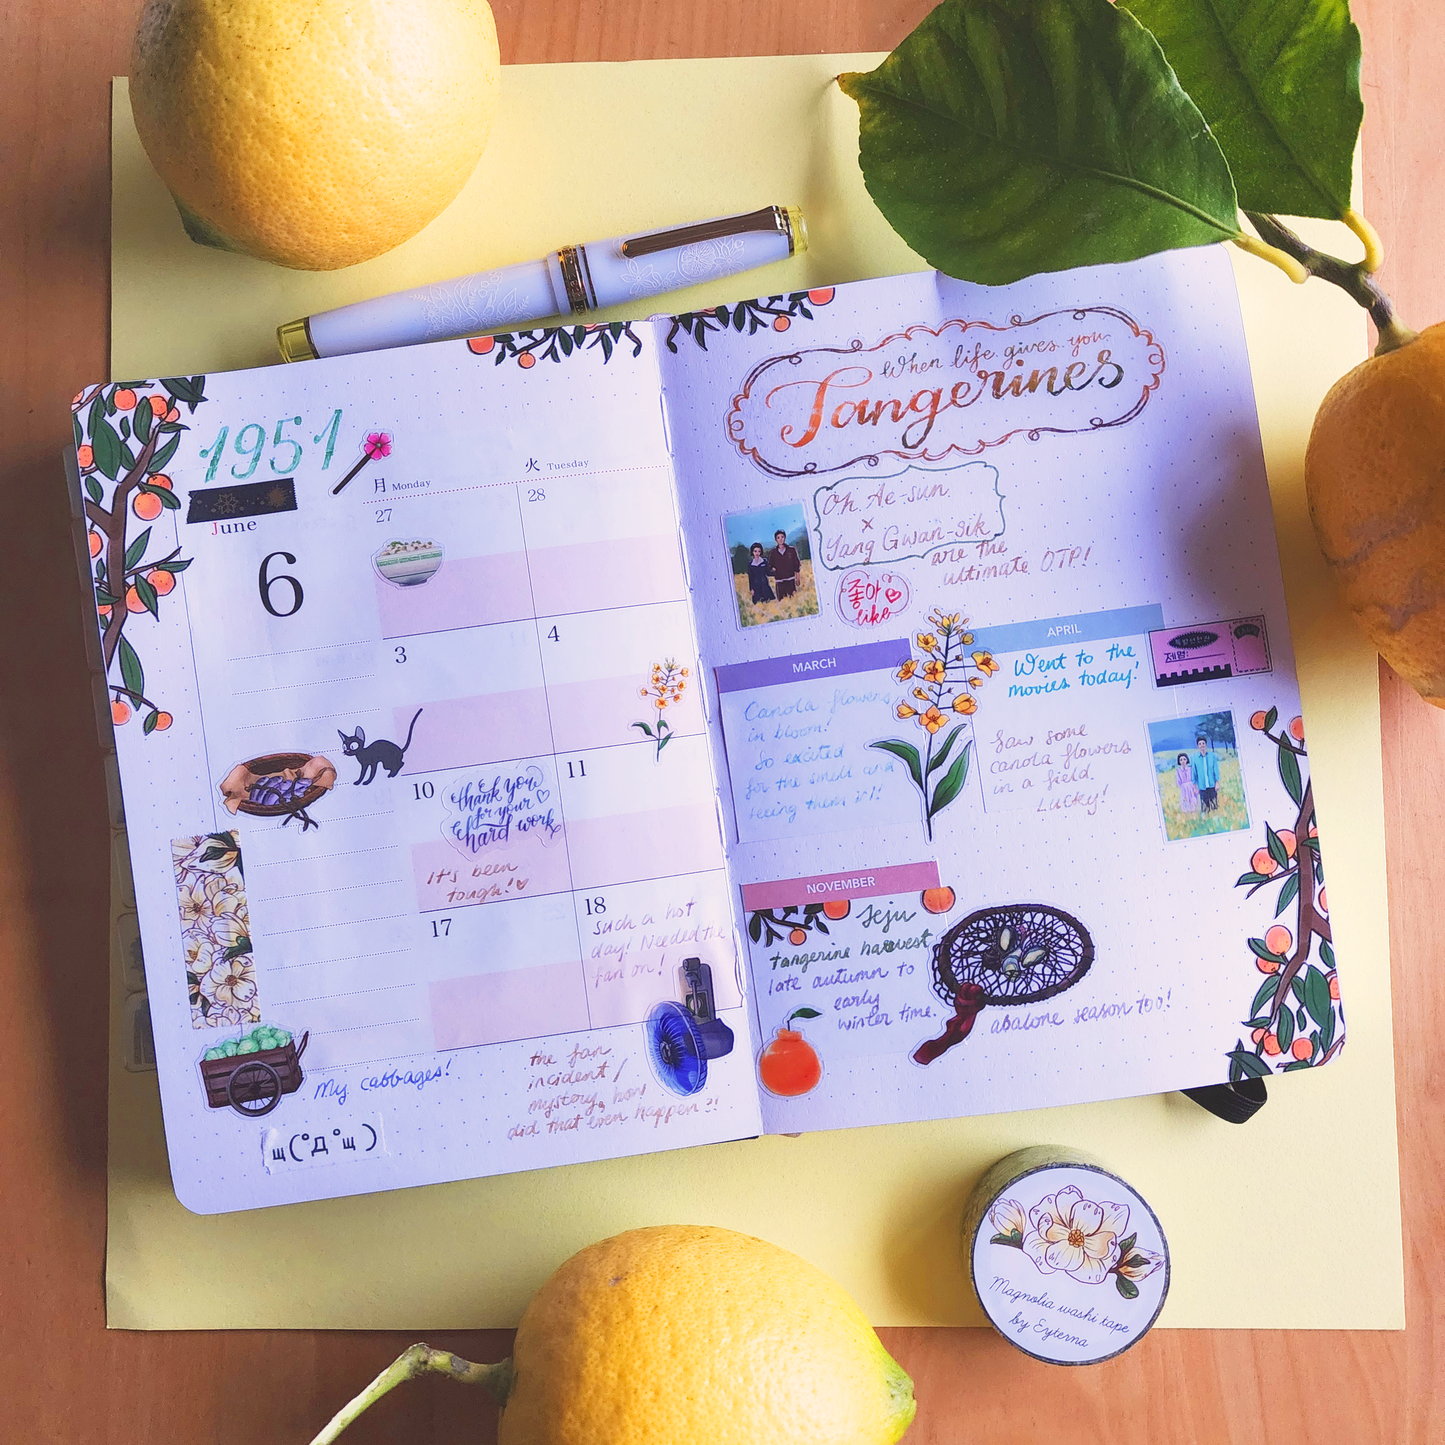 1951
June
6
月 Monday
火 Tuesday
27
28
3
4
10
11
thank you
for your
hard work
It's been
tough!
17
18
such a hot
day! Needed the
fan on!
My cabbages!
щ(゚Д゚щ)
the fan
incident/
mystery, how
did that even happen?!
When life gives you
Tangerines
Oh Ae-sun
×
Yang Gwan-sik
are the
ultimate OTP!
좋아
like
MARCH
Canola flowers
in bloom!
So excited
for the smell and
seeing them irl!
APRIL
Went to the
movies today!
제명:
Saw some
canola flowers
in a field.
Lucky!
NOVEMBER
Jeju
tangerine harvest
late autumn to
early
winter time.
abalone season too!
Magnolia washi tape
by Eyterna